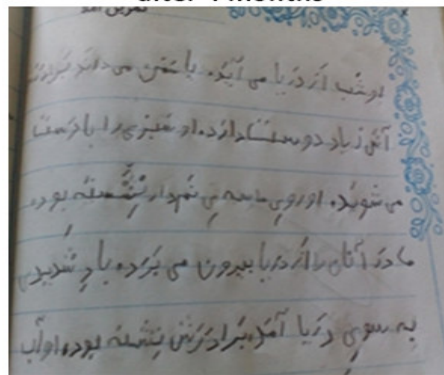 after 4 months
تمرین املا
او شب از دریا می آید. با سخن می داند
آتش زیاد دوست ندارد. او تمیزی را با دست
می شوید. او روی ماسه ی نم دار نشسته بود.
مادر آنان را از دریا بیرون می برد. باد شدیدی
به سوی دریا آمد. برادرش نشسته بود. او آب